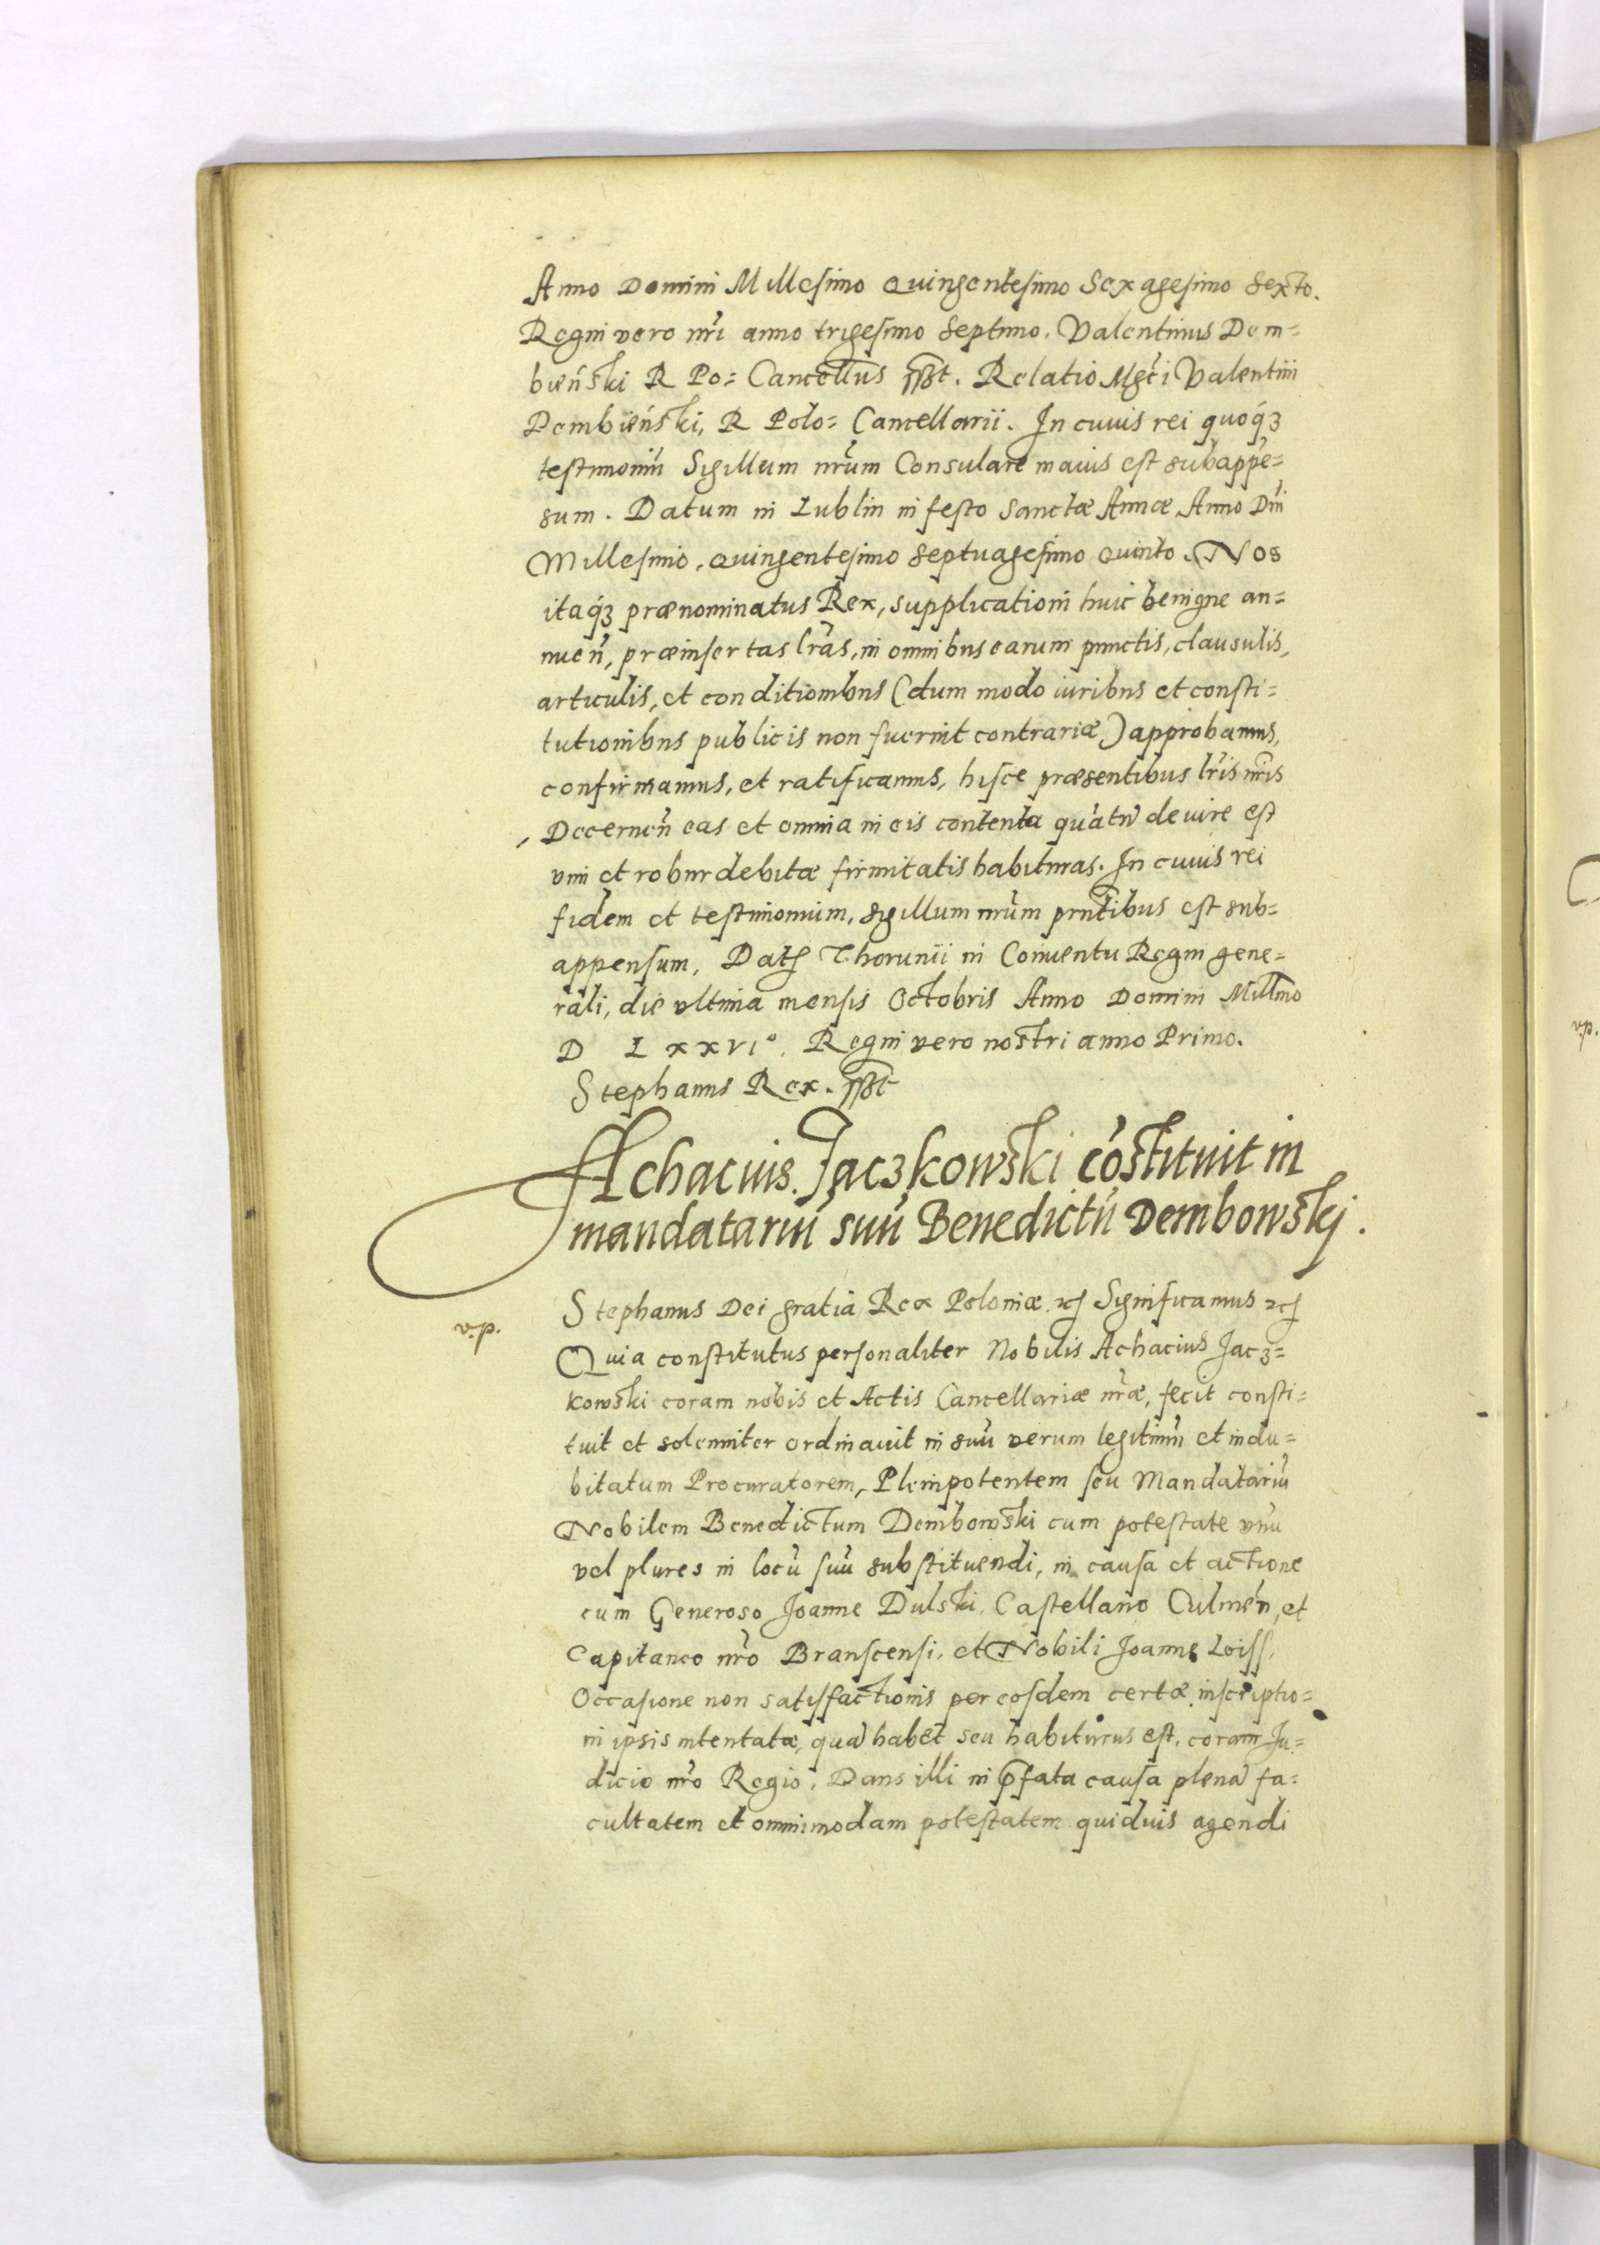 Anno Domini Millesimo Quingentesimo Sexagesimo Sexto.
Regni vero nr̃i anno trigesimo septimo. Valentinus Dem=
bieński R Po= Cancellrius sst. Relatio Mgci Valentini
Dembieński, R Polo= Cancellarii. In cuius rei quoq́ꝫ
testimoniũ Sigillum nr̃um Consulare maius est subappẽ=
sum. Datum in Lublin in festo Sanctæ Annæ Anno Dñi
Millesimo, Quingentesimo Septuagesimo Quinto. Nos
itaq́ꝫ prænominatus Rex, supplicationi huic benigne an=
nueñ, præinsertas lr̃as, in omnibus earum punctis, clausulis,
articulis, et conditionibus (dum modo iuribus et consti=
tutionibus publicis non fuerint contrariæ) approbamus,
confirmamus, et ratificamus, hisce præsentibus lr̃is nr̃is
Decerneñ eas et omnia in eis contenta quátñ de iure est
vim et robur debitæ firmitatis habituras. In cuius rei
fidem et testimonium, sigillum nr̃um pr̃ntibus est sub=
appensum. Datꝭ Thorunii in Conuentu Regni gene=
rali, die vltima mensis Octobris Anno Domini Millmo
D LXXVIº. Regni vero nostri anno Primo.
Stephanus Rex. sst
Achacius Jaczkowski cõstituit in
mandatariũ suũ Benedictũ Dembowskj.
Stephanus Dei gratia Rex Poloniæ ꝛcꝭ Significamus ꝛcꝭ
Quia constitutus personaliter Nobilis Achacius Jacz=
kowski coram nobis et Actis Cancellariæ nr̃æ, fecit consti=
tuit et solenniter ordinauit in suũ verum legitimũ et indu=
bitatum Procuratorem, Plenipotentem seu Mandatariũ
Nobilem Benedictum Dembowski cum potestate vnũ
vel plures in locũ suũ substituendi, in causa et actione
cum Generoso Joanne Dulski, Castellano Culmeñ, et
Capitaneo nr̃o Branscensi, et Nobili Joanne Loiss,
Occasione non satisfactionis per eosdem certæ inscriptio=
ni ipsis intentata, quã habet seu habiturus est, coram Ju=
dicio nr̃o Regio. Dans illi in p̃fata causa plenã fa=
cultatem et omnimodam potestatem quiduis agendi